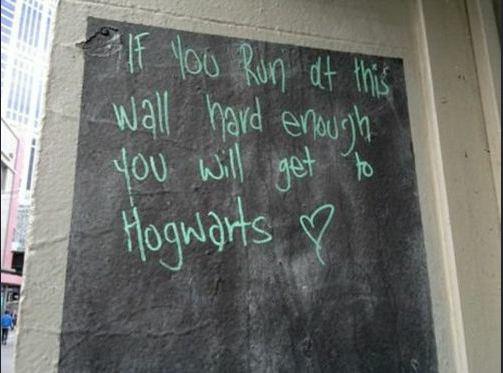 IF You Run at this
wall hard enough
you will get to
Hogwarts ♡